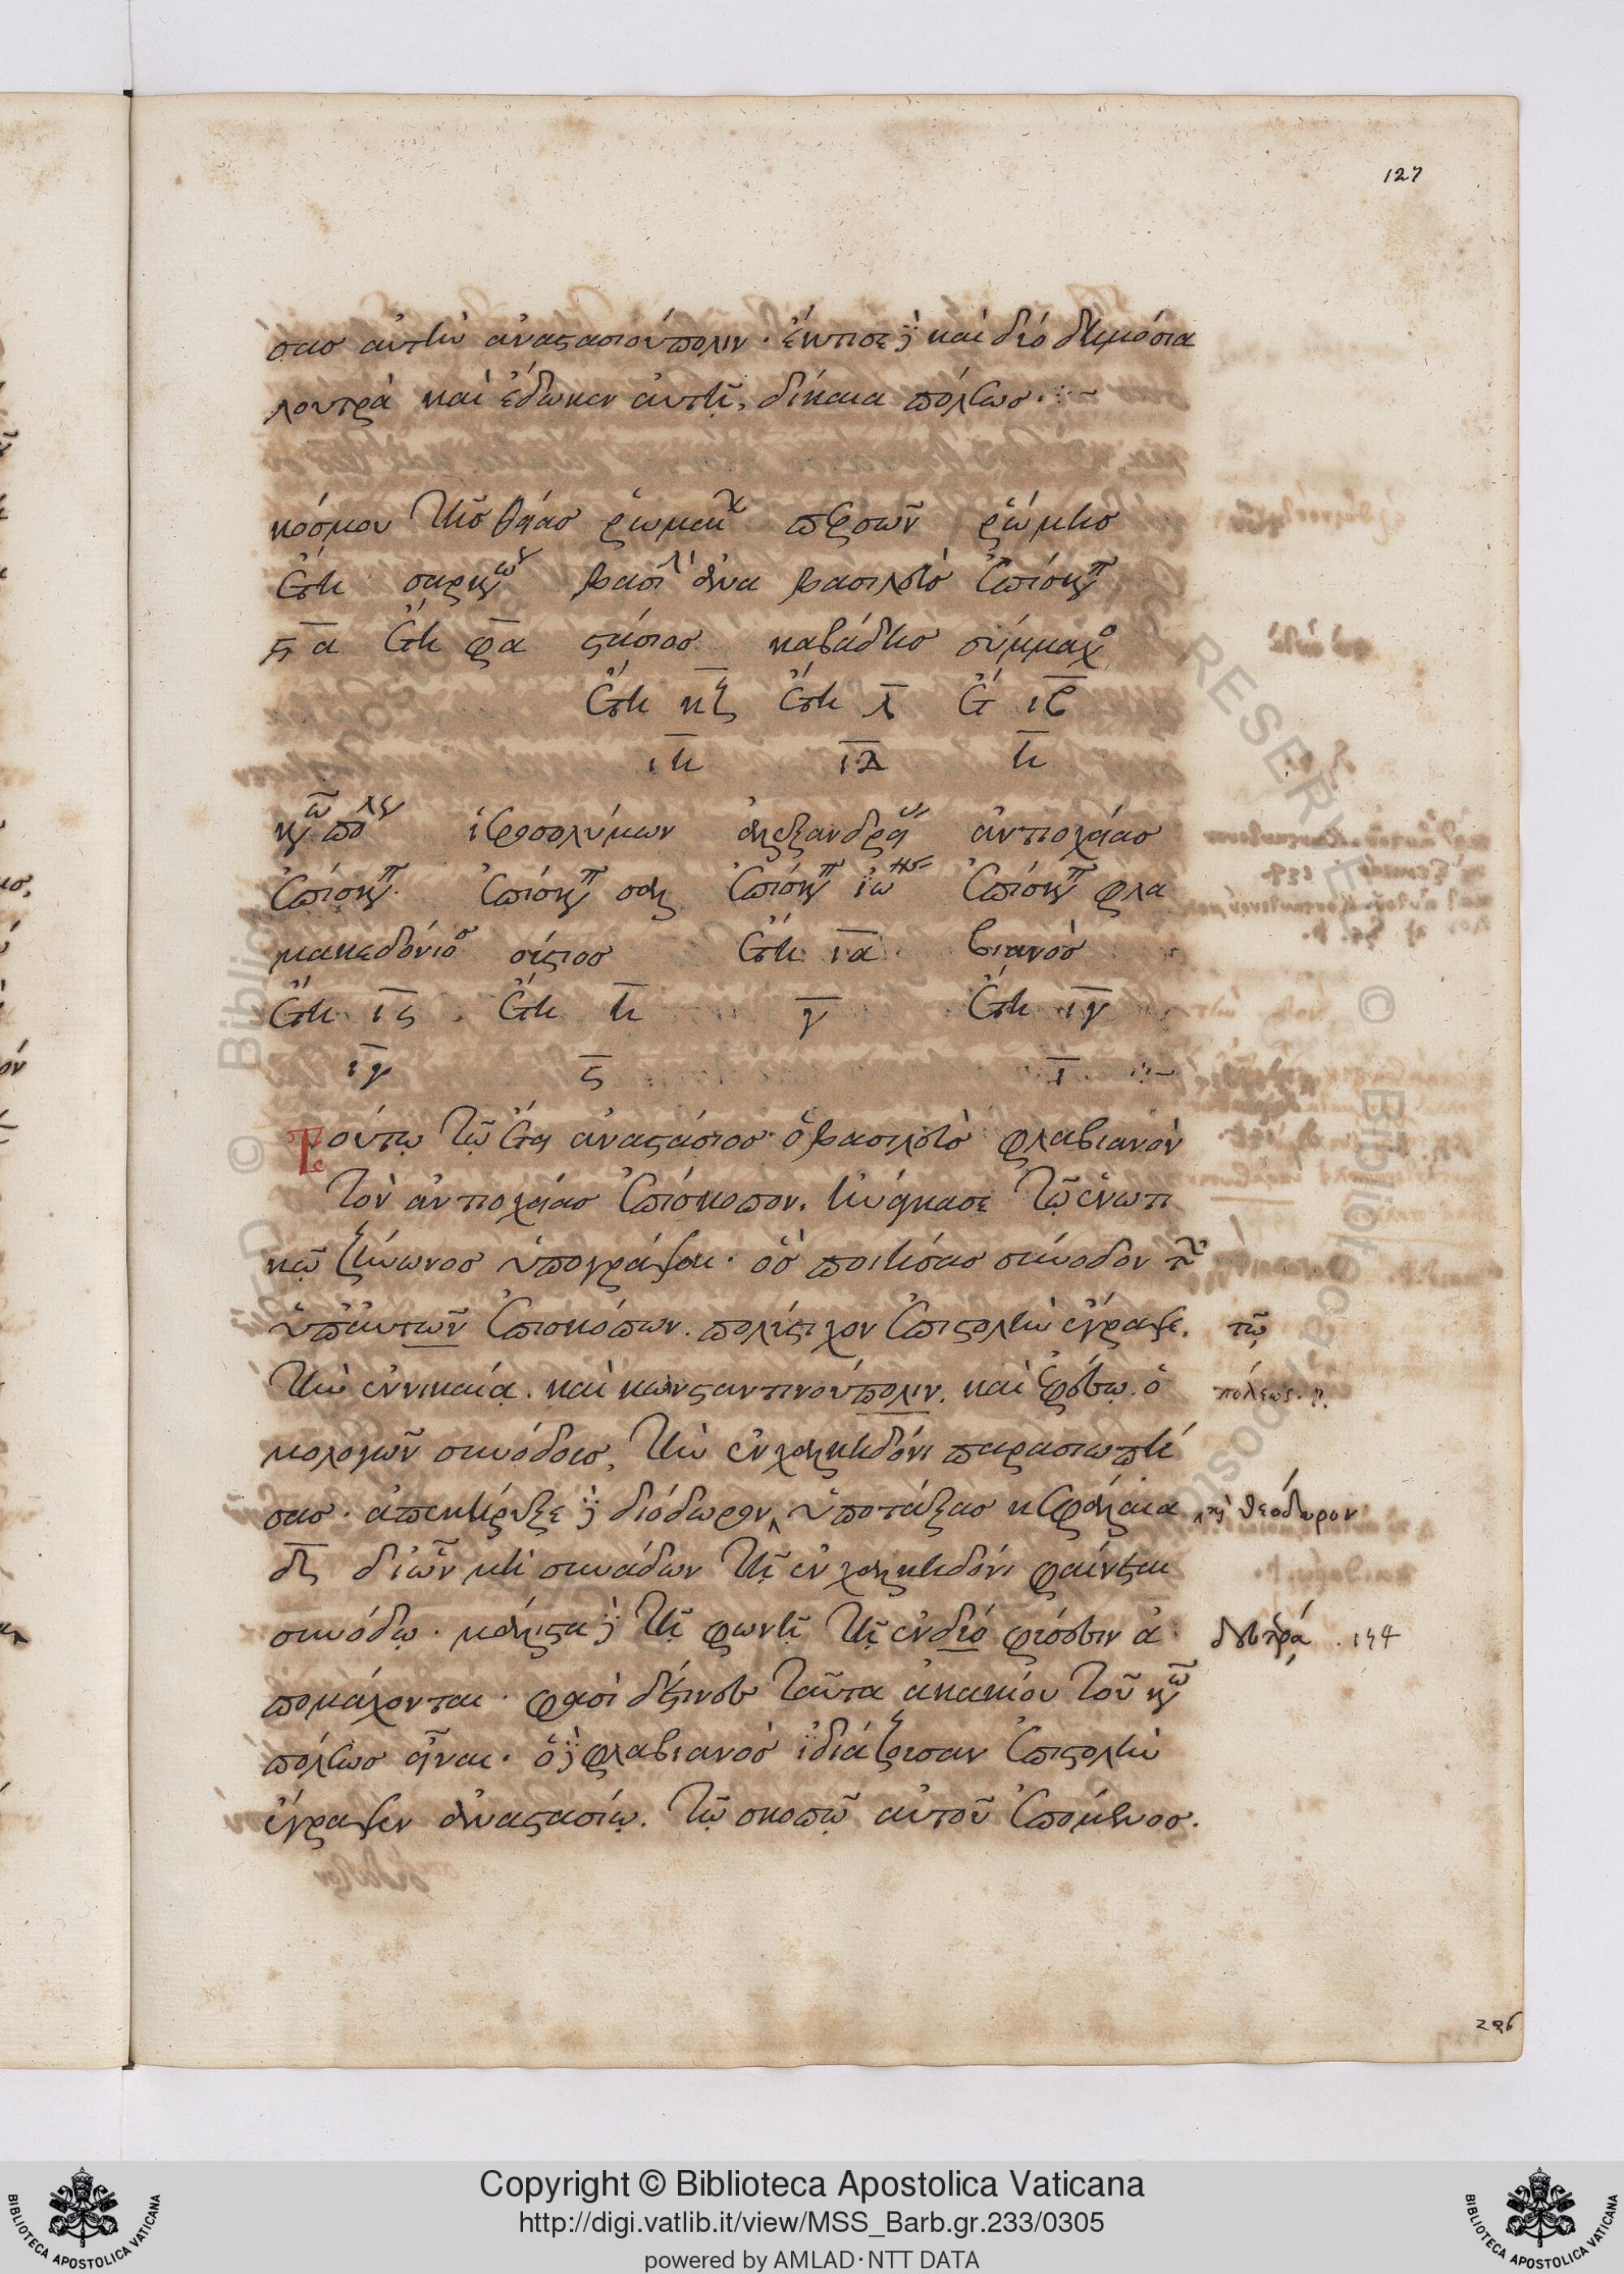 127
σας αὐτὴν ἀναστασιούπολιν. ἔκτισε δὲ καὶ δύο δημόσια
λουτρὰ καὶ ἔδωκεν αὐτῇ, δίκαια πόλεως.
κόσμου τῆς θείας ῥωμαι περσῶν ῥώμης
ἔτη σαρκ βασι ἀνα βασιλεὺς ἐπίσκ
ἔτη φα στάσιος καβάδης σύμμαχ
ἔτη κζ ἔτη λ ἔ ιβ
ιη ια η
κω πο ἱεροσολύμων ἀλεξανδρεί ἀντιοχείας
ἐπίσκ ἐπίσκ σαλ ἐπίσκ ἰω ἐπίσκ φλα
μακεδόνιος ούστιος ἔτη ια βιανὸς
ἔτη ις ἔτη η γ ἔτη ιγ
ιγ ς ι
Τούτῳ τῷ ἔτει ἀναστάσιος ὁ βασιλεὺς φλαβιανὸν
τὸν ἀντιοχείας ἐπίσκοπον, ἠνάγκασε τῷ ἑνωτι
κῷ ζήνωνος ὑπογράψαι. ὃς ποιήσας σύνοδον τ
ὑπ' αὐτῶν ἐπισκόπων. πολύστιχον ἐπιστολὴν ἔγραψε, τῶ
τὴν ἐν νικαίᾳ. καὶ κωνσταντινούπολιν. καὶ ἐφέσῳ. ὁ πόλεως.
μολογῶν συνόδους, τὴν ἐν χαλκηδόνι παρασιωπή
σας. ἀπεκήρυξε δὲ διόδωρον, ὑποτάξας κεφάλαια καὶ θεόδωρον
δς δι' ὧν μὴ συνάδων τῇ ἐν χαλκηδόνι φαίνεται
συνόδῳ. μάλιστα δὲ τῇ φωνῇ τῇ ἐν δύο φύσεσιν ἀ
πομάχονται. φασὶ δέ τινες ταῦτα ἀκακίου τοῦ κω
πόλεως εἶναι. ὁ δὲ φλαβιανὸς ἰδιάζουσαν ἐπιστολὴν
ἔγραψεν ἀναστασίῳ. τῷ σκοπῷ αὐτοῦ ἑπόμενος.
Copyright © Biblioteca Apostolica Vaticana
http://digi.vatlib.it/view/MSS_Barb.gr.233/0305
powered by AMLAD·NTT DATA
BIBLIOTECA APOSTOLICA VATICANA
BIBLIOTECA APOSTOLICA VATICANA